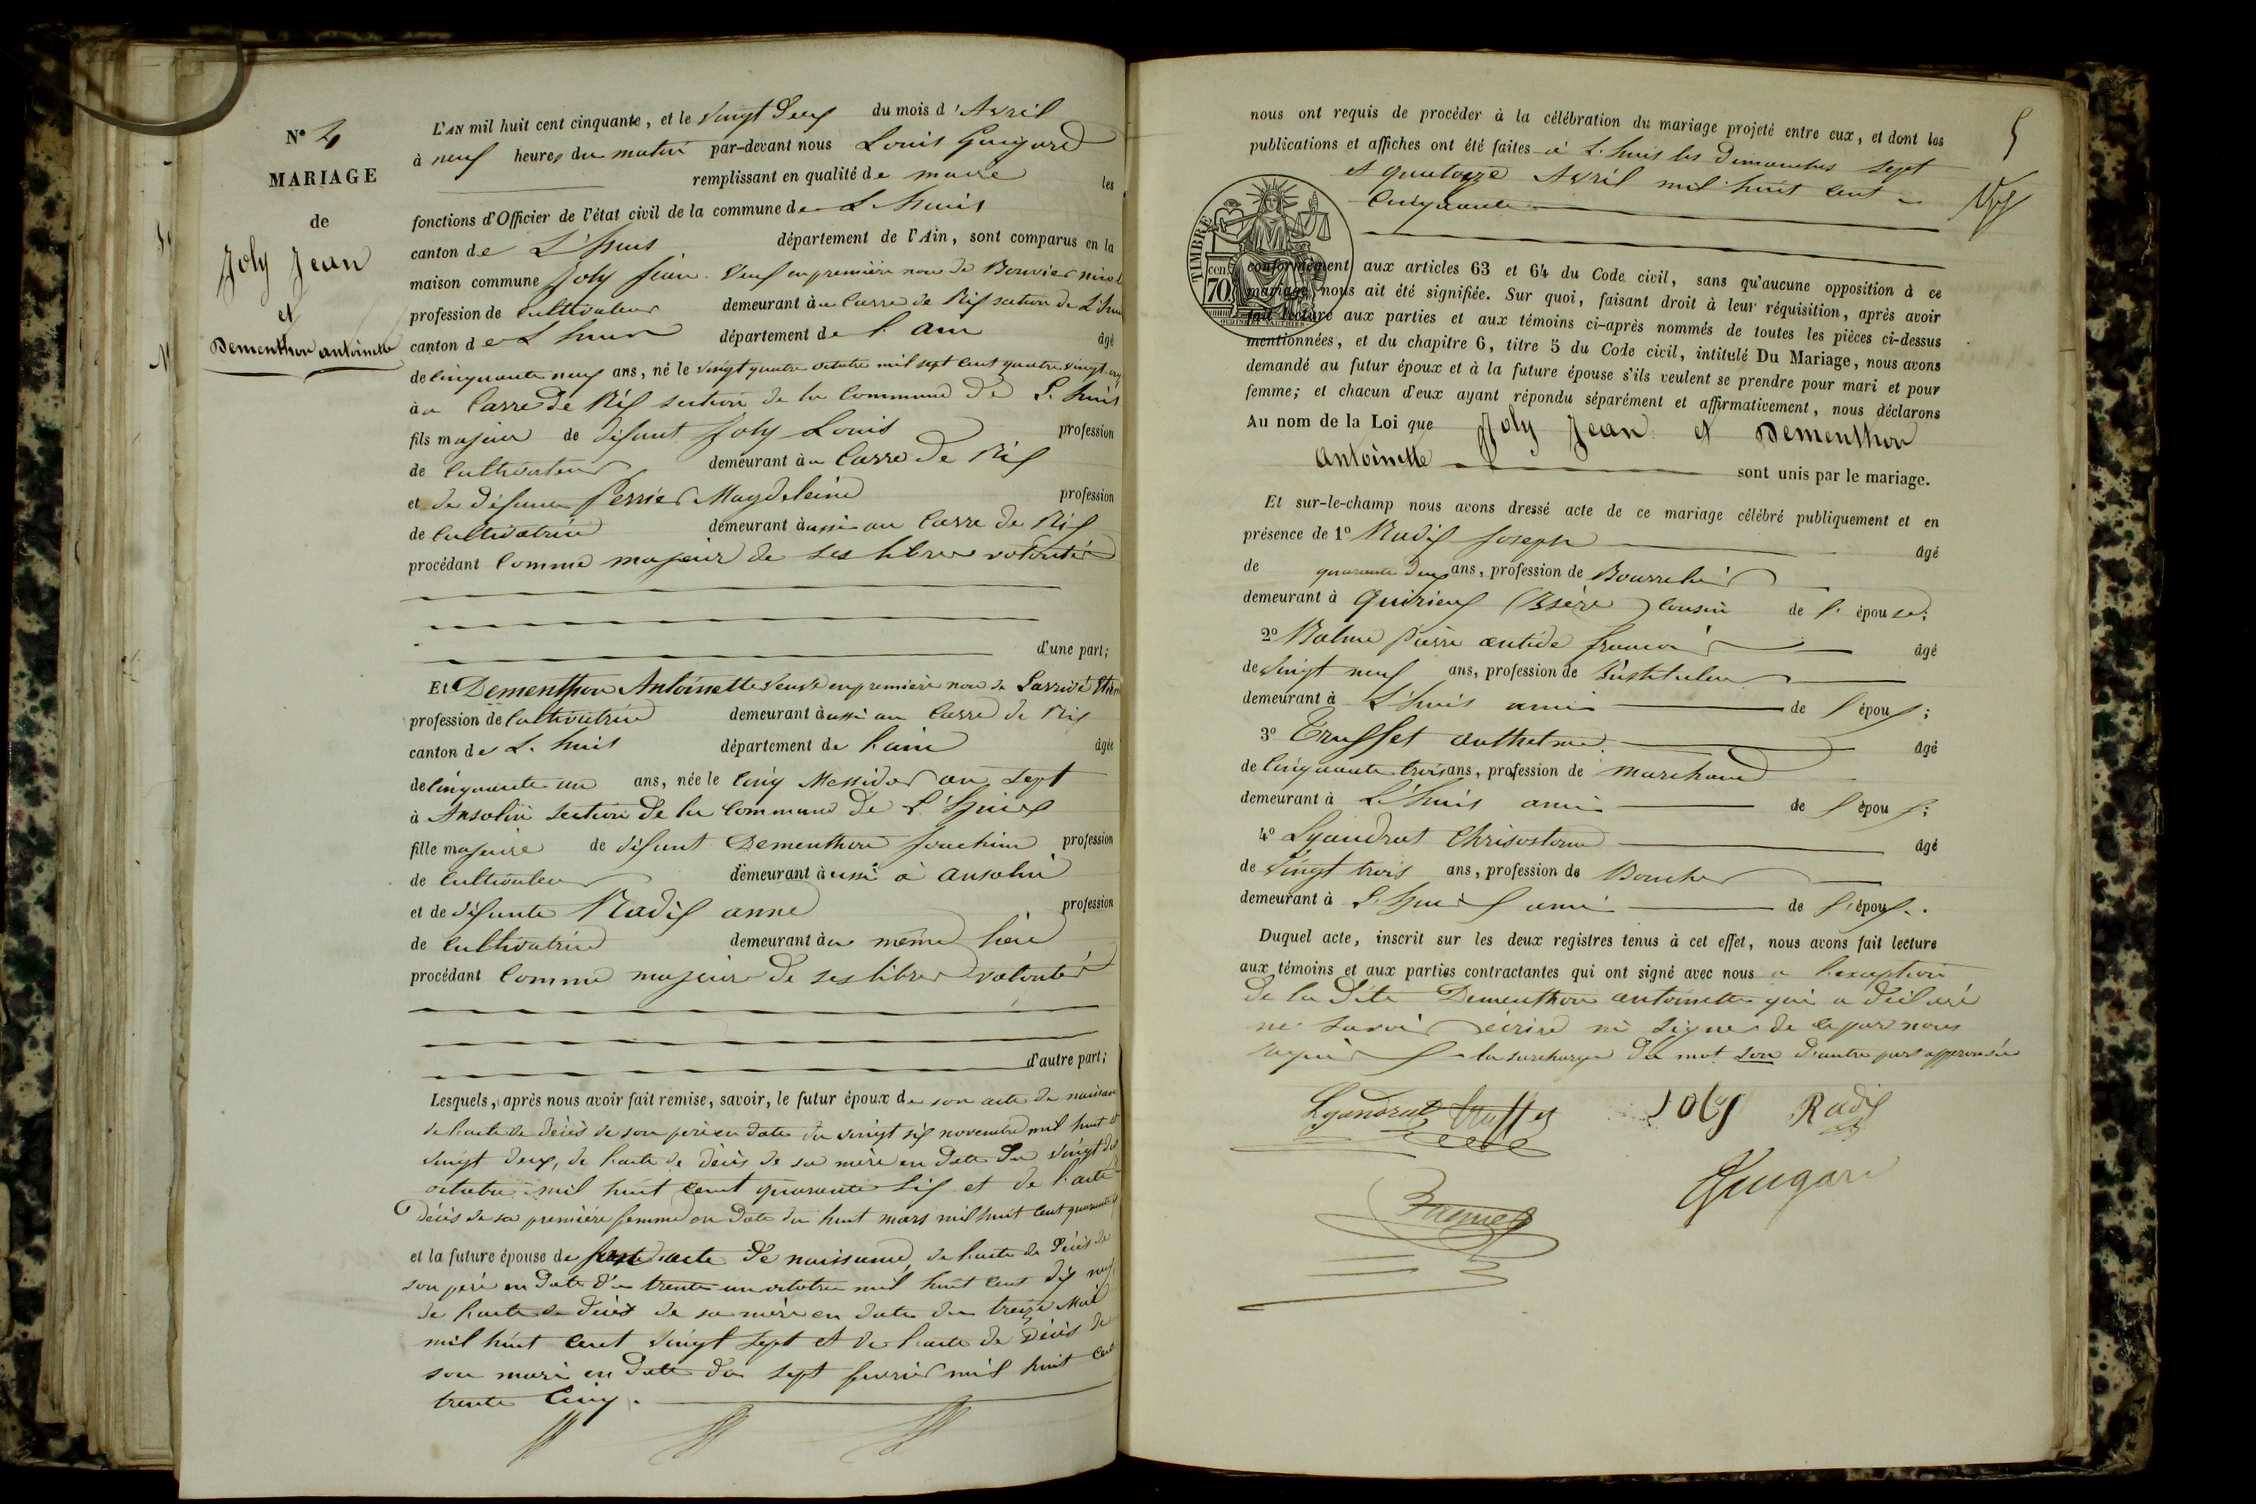 N° 4
MARIAGE
de
Joly Jean
et
Dementhon antoinette
L'AN mil huit cent cinquante, et le vingt deux du mois d'Avril
à neuf heures du matin par-devant nous Louis Guigard
remplissant en qualité de maire les
fonctions d'Officier de l'état civil de la commune de L'huis
canton de L'huis département de l'Ain, sont comparus en la
maison commune Joly Jean veuf en première noce de Bouvier
profession de cultivateur demeurant au Carre de Rix section de L'huis
canton de L'huis département de l'ain âgé
de cinquante neuf ans, né le vingt quatre octobre mil sept cent quatre vingt
au Carre de Rix section de la commune de L'huis
fils majeur de défunt Joly Louis profession
de cultivateur demeurant au Carre de Rix
et de défunte Perrier Magdeleine profession
de cultivatrice demeurant aussi au Carre de Rix
procédant comme majeur de ses libres volontés
d'une part;
Et Dementhon Antoinette veuve en première noce de
profession de cultivatrice demeurant aussi au Carre de Rix
canton de L'huis département de l'ain âgée
de cinquante un ans, née le cinq Messidor an sept
à Ansolin section de la commune de L'huis
fille majeure de défunt Dementhon Joachim profession
de cultivateur demeurant aussi à ansolin
et de défunte Radix anne profession
de cultivatrice demeurant au même lieu
procédant comme majeure de ses libres volontés
d'autre part;
Lesquels, après nous avoir fait remise, savoir, le futur époux de son acte de naissance
de l'acte de décès de son père en date du vingt six novembre mil huit cent
vingt deux, de l'acte de décès de sa mère en date du vingt
octobre mil huit cent quarante six et de l'acte
décès de sa première femme en date du huit mars mil huit cent quarante
et la future épouse de son acte de naissance, de l'acte de décès de
son père en date du trente un octobre mil huit cent dix neuf
de l'acte de décès de sa mère en date du treize Mai
mil huit cent vingt sept et de l'acte de décès de
son mari en date du sept février mil huit cent
trente cinq.
5
nous ont requis de procéder à la célébration du mariage projeté entre eux, et dont les
publications et affiches ont été faites à L'huis les dimanches sept
et quatorze Avril mil huit cent
cinquante
TIMBRE
70 cen.
conformément aux articles 63 et 64 du Code civil, sans qu'aucune opposition à ce
mariage nous ait été signifiée. Sur quoi, faisant droit à leur réquisition, après avoir
fait lecture aux parties et aux témoins ci-après nommés de toutes les pièces ci-dessus
mentionnées, et du chapitre 6, titre 5 du Code civil, intitulé Du Mariage, nous avons
demandé au futur époux et à la future épouse s'ils veulent se prendre pour mari et pour
femme; et chacun d'eux ayant répondu séparément et affirmativement, nous déclarons
Au nom de la Loi que Joly Jean et Dementhon
Antoinette sont unis par le mariage.
Et sur-le-champ nous avons dressé acte de ce mariage célébré publiquement et en
présence de 1° Radix Joseph âgé
de quarante deux ans, profession de Bourrelier
demeurant à Quirieux (Isère) cousin de l'épouse;
2° Balme Pierre antide françois âgé
de vingt neuf ans, profession de Instituteur
demeurant à L'huis ami de l'époux;
3° Truffet anthelme âgé
de cinquante trois ans, profession de marchand
demeurant à L'huis ami de l'époux;
4° Lyaudrat Chrisostome âgé
de vingt trois ans, profession de Boucher
demeurant à L'huis ami de l'époux.
Duquel acte, inscrit sur les deux registres tenus à cet effet, nous avons fait lecture
aux témoins et aux parties contractantes qui ont signé avec nous a l'exception
de la dite Dementhon antoinette qui a déclaré
ne savoir écrire ni signer de ce par nous
requis la surcharge du mot son d'autre part approuvée
Lyaudrat Truffet Joly Radix
Guigard